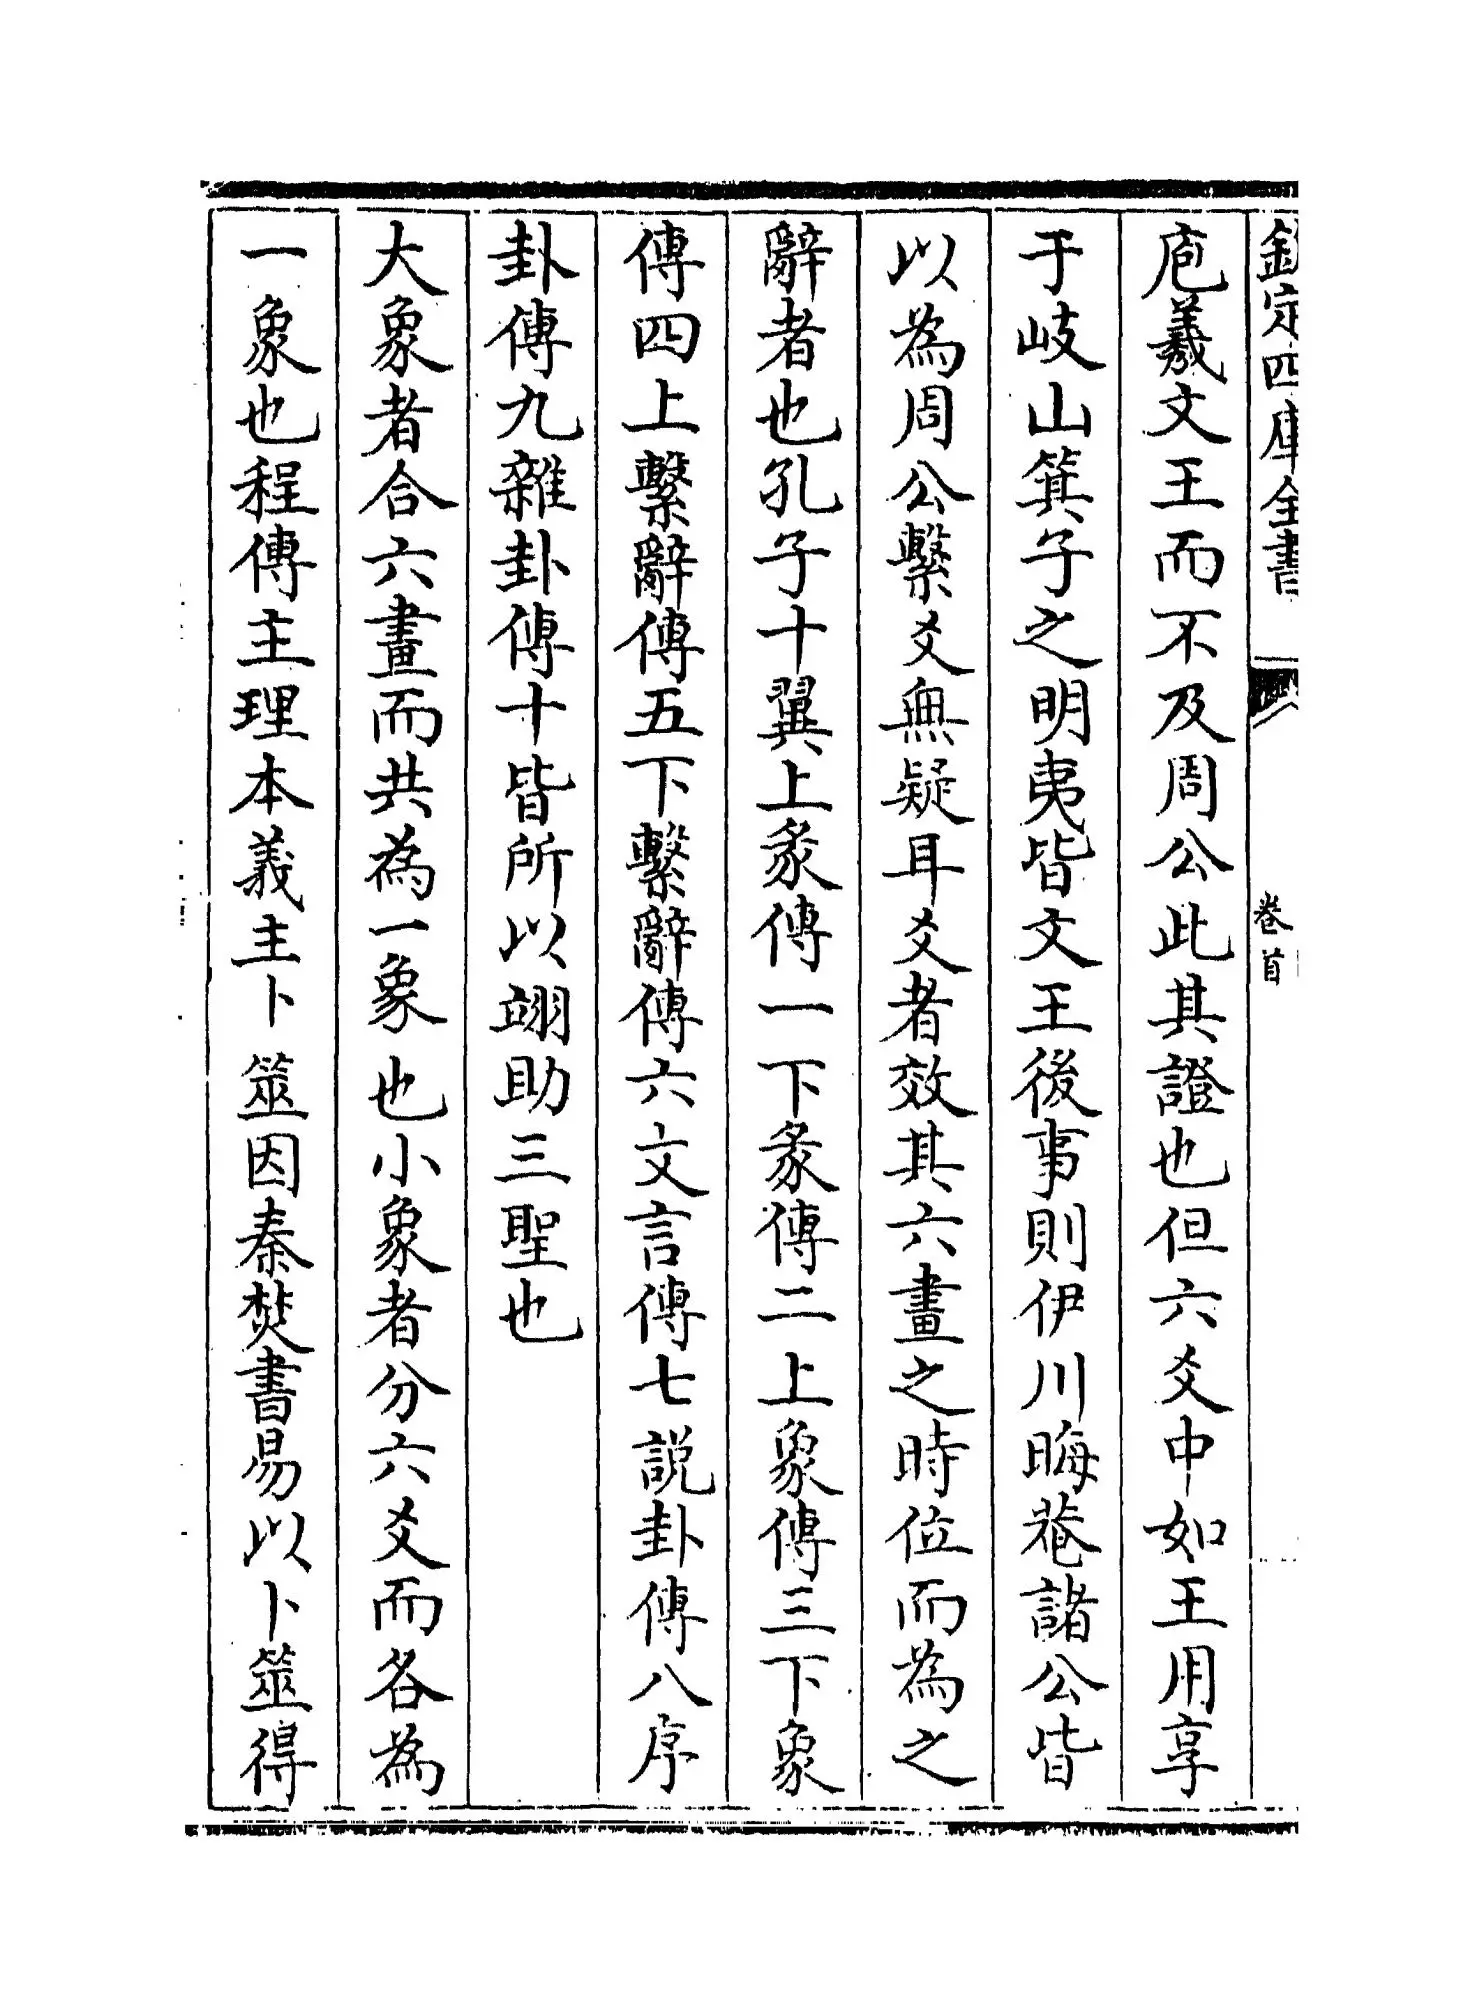 欽定四庫全書
卷首
庖羲文王而不及周公此其證也但六爻中如王用享
于岐山箕子之明夷皆文王後事則伊川晦菴諸公皆
以為周公繫爻無疑耳爻者效其六畫之時位而為之
辭者也孔子十翼上彖傳一下彖傳二上象傳三下象
傳四上繫辭傳五下繫辭傳六文言傳七説卦傳八序
卦傳九雜卦傳十皆所以翊助三聖也
大象者合六畫而共為一象也小象者分六爻而各為
一象也程傳主理本義主卜筮因秦焚書易以卜筮得